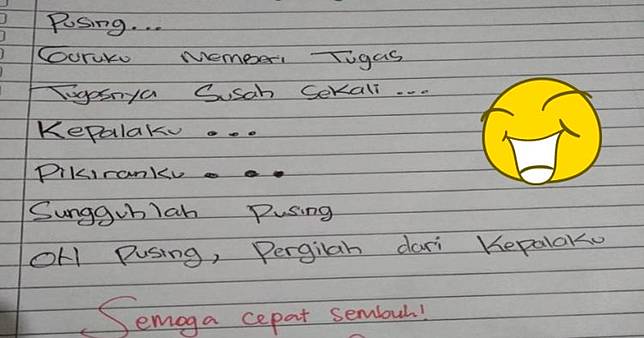 Pusing...
Guruku Memberi Tugas
Tugasnya Susah Sekali ...
Kepalaku ...
Pikiranku ...
Sungguhlah Pusing
OH Pusing, Pergilah dari Kepalaku
Semoga cepat sembuh!